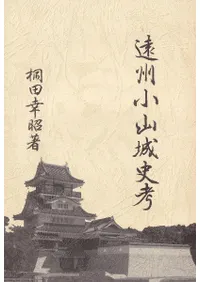 遠州小山城史考
桐田幸昭著